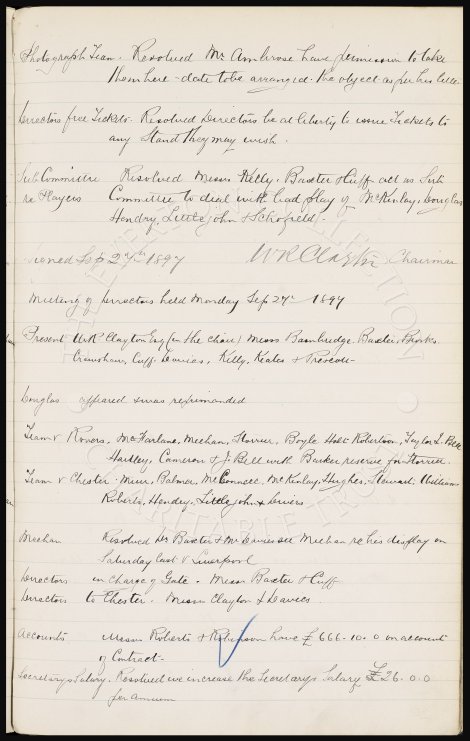 Photograph Team. Resolved Mr Ambrose have permission to take
them here - date to be arranged. The object as per his letter
Directors free Tickets. Resolved Directors be at liberty to issue Tickets to
any Stand they may wish.
Sub Committee Resolved Messrs Kelly, Baxter & Cuff act as Sub
re Players Committee to deal with bad play of McKinlay, Douglas
Hendry, Littlejohn & Schofield.
Signed Sep 27th 1897 W R Clayton Chairman
Meeting of Directors held Monday Sep 27th 1897
Present W R Clayton Esq (in the chair) Messrs Bainbridge, Baxter,
Crawshaw, Cuff, Davies, Kelly, Keates & Prescott
Douglas appeared & was reprimanded
Team v Rovers. McFarlane, Meehan, Storrier, Boyle Holt Robertson, Taylor L. Bell
Hartley, Cameron & J. Bell with Barker reserve for Storrier.
Team v Chester. Muir, Balmer, McConnell, McKinlay, Hughes, Stewart, Williams
Roberts, Hendry, Littlejohn & Divers
Meehan Resolved Dr Baxter & Mr Davies see Meehan re his display on
Saturday last v Liverpool
Directors in Charge of Gate. Messrs Baxter & Cuff
Directors to Chester. Messrs Clayton & Davies
Accounts Messrs Roberts & Robinson have £666.10.0 on account
of Contract -
Secretarys Salary. Resolved we increase the Secretarys Salary £26.0.0
per annum
COLLECTION
CHARITABLE TRUST